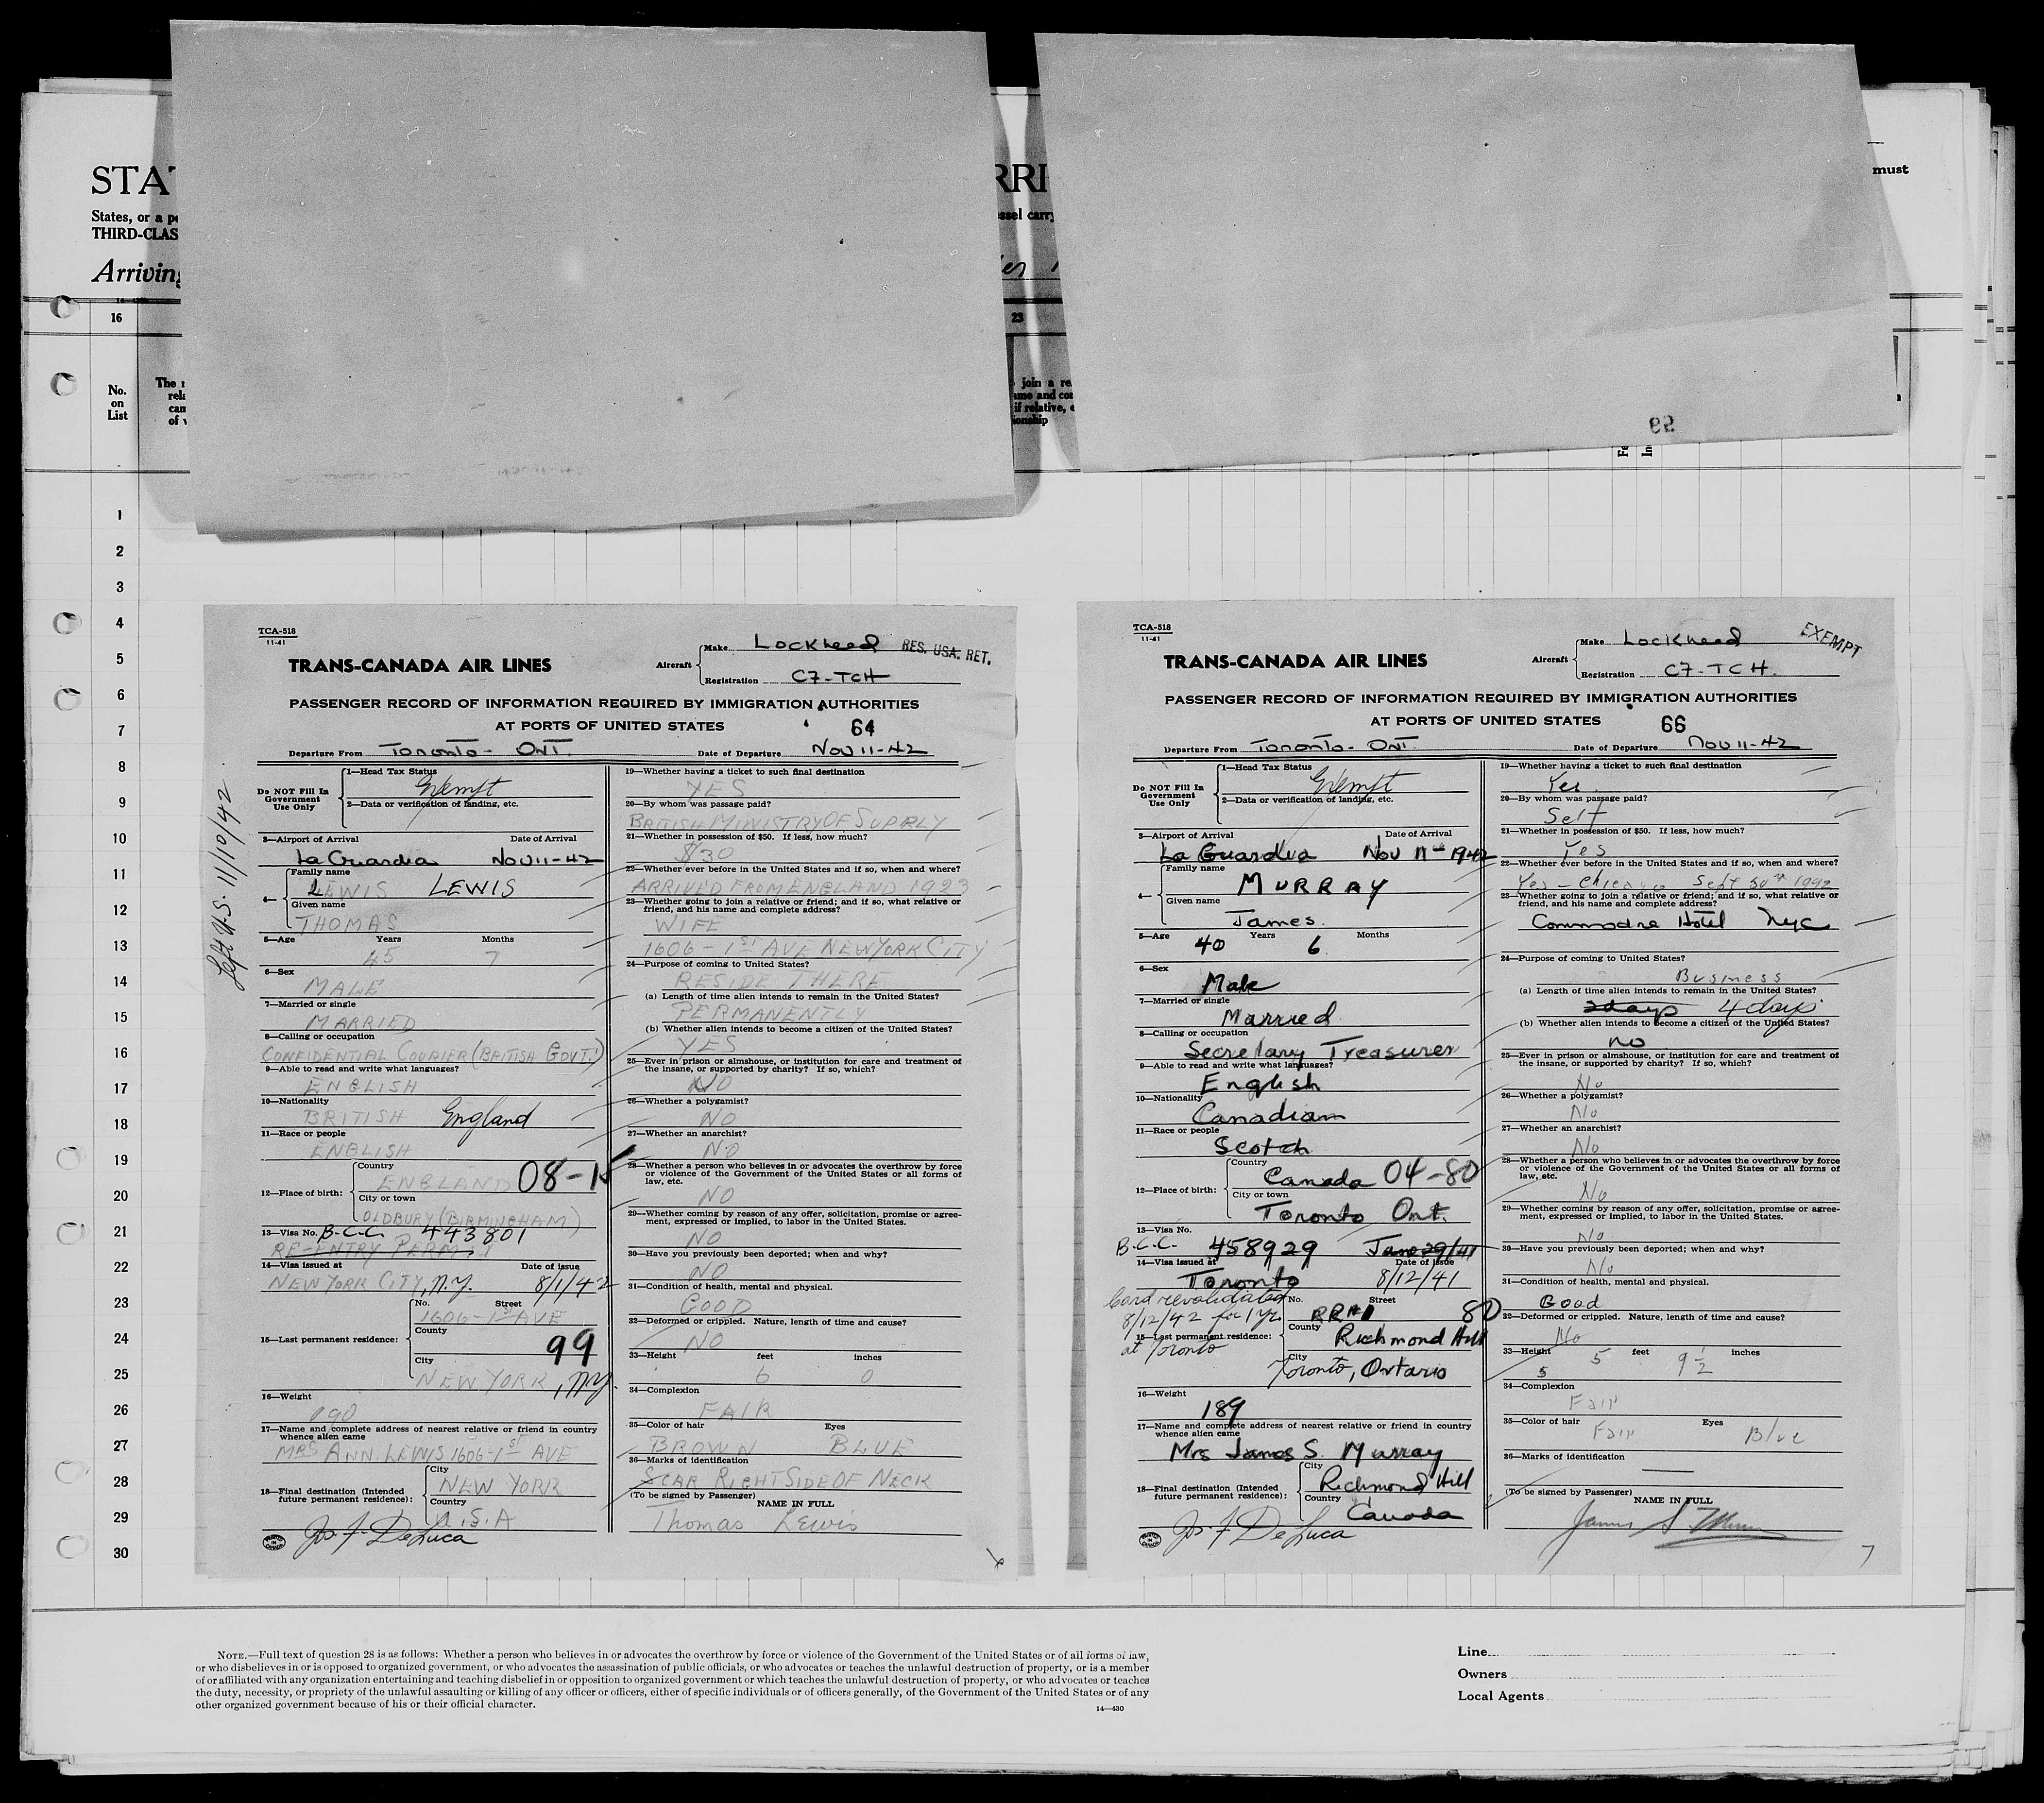 STAT
RRI
must
States, or a po
essel carry
THIRD-CLAS
Arriving
16
23
No.
on
List
The
rela
can
of v
join a re
ame and com
if relative, e
ionship
1
2
3
4
5
6
7
8
9
10
11
12
13
14
15
16
17
18
19
20
21
22
23
24
25
26
27
28
29
30
TCA-518
11-41
TRANS-CANADA AIR LINES
Aircraft
Make Lockheed
RES. USA. RET.
Registration CF-TCH
PASSENGER RECORD OF INFORMATION REQUIRED BY IMMIGRATION AUTHORITIES
AT PORTS OF UNITED STATES 64
Departure From Toronto - Ont. Date of Departure Nov 11-42
Left U.S. 11/10/42
Do NOT Fill In
Government
Use Only
1—Head Tax Status
Exempt
2—Data or verification of landing, etc.
3—Airport of Arrival Date of Arrival
La Guardia Nov 11-42
4— Family name
LEWIS LEWIS
Given name
THOMAS
5—Age Years Months
45 7
6—Sex
MALE
7—Married or single
MARRIED
8—Calling or occupation
CONFIDENTIAL COURIER (BRITISH GOVT.)
9—Able to read and write what languages?
ENGLISH
10—Nationality
BRITISH England
11—Race or people
ENGLISH
12—Place of birth:
Country
ENGLAND 08-15
City or town
OLDBURY (BIRMINGHAM)
13—Visa No. B.C.C. 443801
RE-ENTRY PERMIT
14—Visa issued at Date of issue
NEW YORK CITY, N.Y. 8/1/42
15—Last permanent residence:
No. Street
1606-1ST AVE
County
99
City
NEW YORK, NY
16—Weight
190
17—Name and complete address of nearest relative or friend in country
whence alien came
MRS ANN LEWIS 1606-1ST AVE
18—Final destination (Intended
future permanent residence):
City
NEW YORK
Country
U.S.A
Jos. F. DeLuca
19—Whether having a ticket to such final destination
YES
20—By whom was passage paid?
BRITISH MINISTRY OF SUPPLY
21—Whether in possession of $50. If less, how much?
$30
22—Whether ever before in the United States and if so, when and where?
ARRIVED FROM ENGLAND 1923
23—Whether going to join a relative or friend; and if so, what relative or
friend, and his name and complete address?
WIFE
1606-1ST AVE NEW YORK CITY
24—Purpose of coming to United States?
RESIDE THERE
(a) Length of time alien intends to remain in the United States?
PERMANENTLY
(b) Whether alien intends to become a citizen of the United States?
YES
25—Ever in prison or almshouse, or institution for care and treatment of
the insane, or supported by charity? If so, which?
NO
26—Whether a polygamist?
NO
27—Whether an anarchist?
NO
28—Whether a person who believes in or advocates the overthrow by force
or violence of the Government of the United States or all forms of
law, etc.
NO
29—Whether coming by reason of any offer, solicitation, promise or agree-
ment, expressed or implied, to labor in the United States.
NO
30—Have you previously been deported; when and why?
NO
31—Condition of health, mental and physical.
GOOD
32—Deformed or crippled. Nature, length of time and cause?
NO
33—Height feet inches
6 0
34—Complexion
FAIR
35—Color of hair Eyes
BROWN BLUE
36—Marks of identification
SCAR RIGHT SIDE OF NECK
(To be signed by Passenger) NAME IN FULL
Thomas Lewis
TCA-518
11-41
TRANS-CANADA AIR LINES
Aircraft
Make Lockheed
EXEMPT
Registration CF-TCH.
PASSENGER RECORD OF INFORMATION REQUIRED BY IMMIGRATION AUTHORITIES
AT PORTS OF UNITED STATES 66
Departure From Toronto - Ont. Date of Departure Nov 11-42
Do NOT Fill In
Government
Use Only
1—Head Tax Status
Exempt
2—Data or verification of landing, etc.
3—Airport of Arrival Date of Arrival
La Guardia Nov 11-1942
4— Family name
MURRAY
Given name
James.
5—Age Years Months
40 6
6—Sex
Male
7—Married or single
Married
8—Calling or occupation
Secretary Treasurer
9—Able to read and write what languages?
English
10—Nationality
Canadian
11—Race or people
Scotch
12—Place of birth:
Country
Canada 04-80
City or town
Toronto Ont.
13—Visa No.
B.C.C. 458929 June 29/41
14—Visa issued at Date of issue
Toronto 8/12/41
Card revalidated
8/12/42 for 1 yr.
at Toronto
15—Last permanent residence:
No. Street
RR#1 80
County
Richmond Hill
City
Toronto, Ontario
16—Weight
189
17—Name and complete address of nearest relative or friend in country
whence alien came
Mrs James S. Murray
18—Final destination (Intended
future permanent residence):
City
Richmond Hill
Country
Canada
Jos. F. DeLuca
19—Whether having a ticket to such final destination
Yes
20—By whom was passage paid?
Self
21—Whether in possession of $50. If less, how much?
Yes
22—Whether ever before in the United States and if so, when and where?
Yes - Chicago Sept 30th 1942
23—Whether going to join a relative or friend; and if so, what relative or
friend, and his name and complete address?
Commodre Hotel NYC
24—Purpose of coming to United States?
Business
(a) Length of time alien intends to remain in the United States?
2 days 4 days
(b) Whether alien intends to become a citizen of the United States?
no
25—Ever in prison or almshouse, or institution for care and treatment of
the insane, or supported by charity? If so, which?
No
26—Whether a polygamist?
No
27—Whether an anarchist?
No
28—Whether a person who believes in or advocates the overthrow by force
or violence of the Government of the United States or all forms of
law, etc.
No
29—Whether coming by reason of any offer, solicitation, promise or agree-
ment, expressed or implied, to labor in the United States.
No
30—Have you previously been deported; when and why?
No
31—Condition of health, mental and physical.
Good
32—Deformed or crippled. Nature, length of time and cause?
No
33—Height feet inches
5 5 9½
34—Complexion
Fair
35—Color of hair Eyes
Fair Blue
36—Marks of identification
—
(To be signed by Passenger) NAME IN FULL
James S. Murray
7
NOTE.—Full text of question 28 is as follows: Whether a person who believes in or advocates the overthrow by force or violence of the Government of the United States or of all forms of law,
or who disbelieves in or is opposed to organized government, or who advocates the assassination of public officials, or who advocates or teaches the unlawful destruction of property, or is a member
of or affiliated with any organization entertaining and teaching disbelief in or opposition to organized government or which teaches the unlawful destruction of property, or who advocates or teaches
the duty, necessity, or propriety of the unlawful assaulting or killing of any officer or officers, either of specific individuals or of officers generally, of the Government of the United States or of any
other organized government because of his or their official character.
14—430
Line
Owners
Local Agents